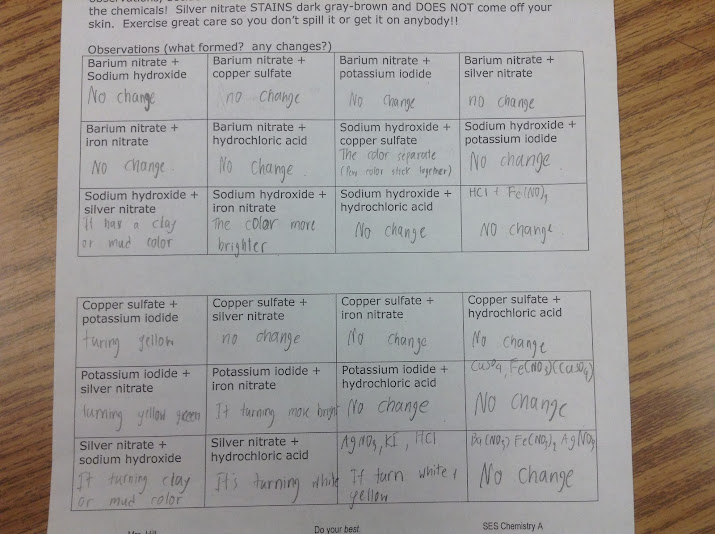 the chemicals! Silver nitrate STAINS dark gray-brown and DOES NOT come off your
skin. Exercise great care so you don't spill it or get it on anybody!!
Observations (what formed? any changes?)
Barium nitrate +
Sodium hydroxide
No change
Barium nitrate +
copper sulfate
no change
Barium nitrate +
potassium iodide
No change
Barium nitrate +
silver nitrate
no change
Barium nitrate +
iron nitrate
No change
Barium nitrate +
hydrochloric acid
No change
Sodium hydroxide +
copper sulfate
The color separate
color stick together)
Sodium hydroxide +
potassium iodide
No change
Sodium hydroxide +
silver nitrate
It has a clay
or mud color
Sodium hydroxide +
iron nitrate
The color more
brighter
Sodium hydroxide +
hydrochloric acid
No change
HCl +
NO change
Copper sulfate +
potassium iodide
turing yellow
Copper sulfate +
silver nitrate
no change
Copper sulfate +
iron nitrate
No change
Copper sulfate +
hydrochloric acid
No change
Potassium iodide +
silver nitrate
turning yellow green
Potassium iodide +
iron nitrate
It turning more bright
Potassium iodide +
hydrochloric acid
No change
No change
Silver nitrate +
sodium hydroxide
It turning clay
or mud color
Silver nitrate +
hydrochloric acid
It's turning white
AgNO3, KI, HCl
It turn white +
yellow
No change
Do your best.
SES Chemistry A